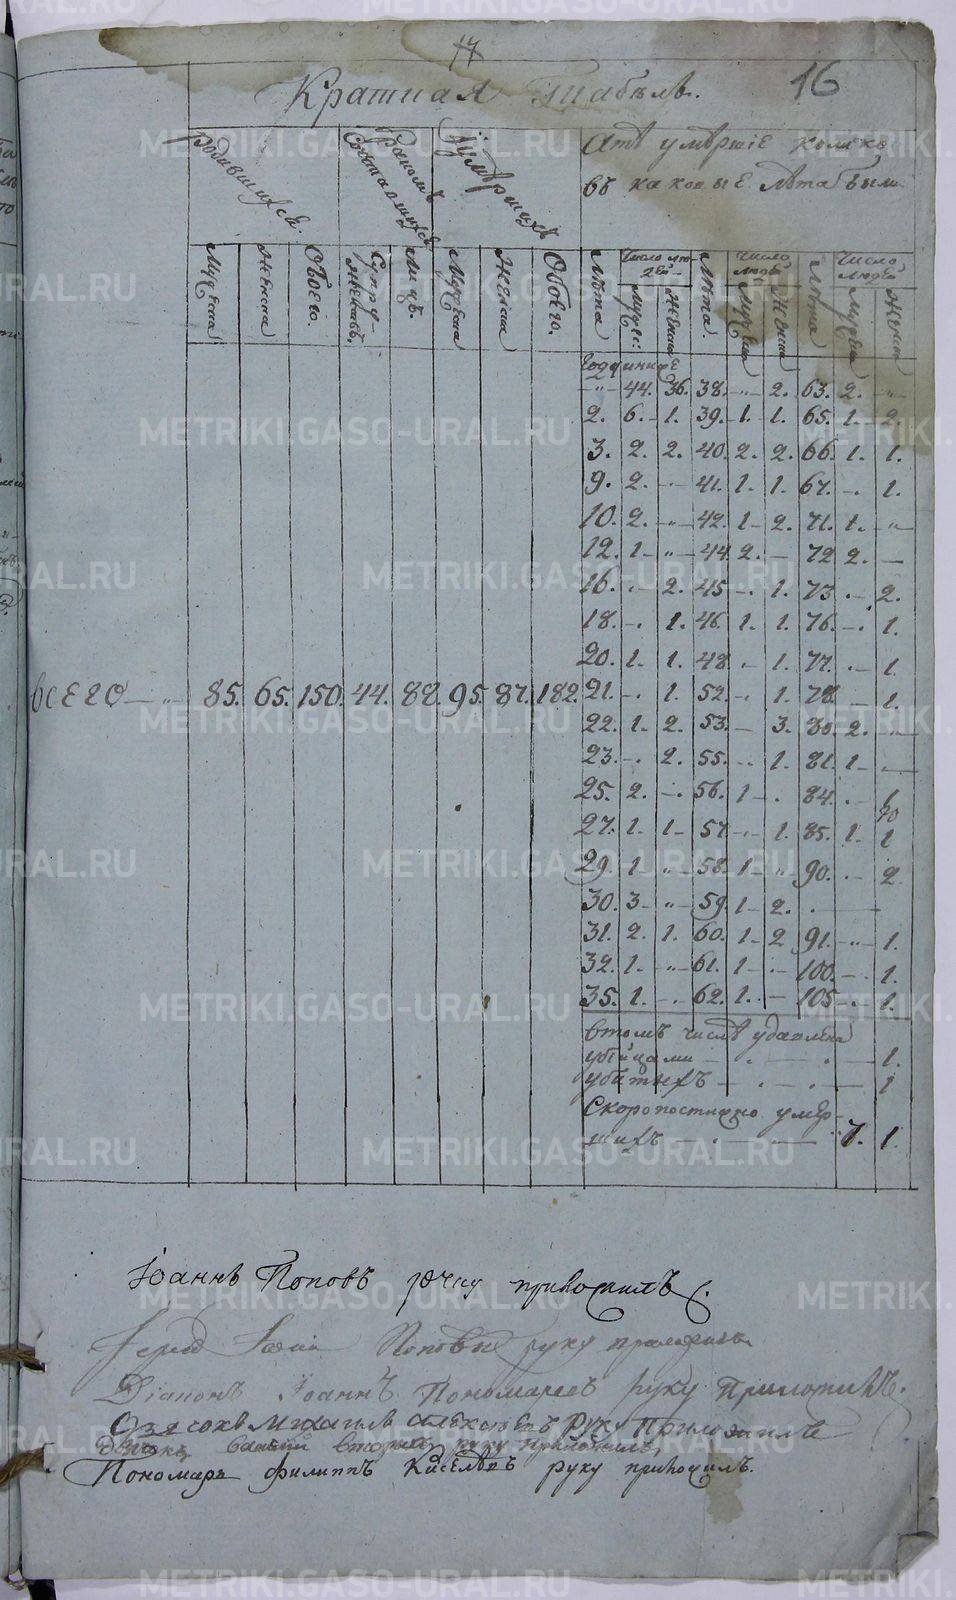 17
16
Краткая Табель.
Родившихся.
Бракомъ Сочетавшихся
Умершихъ
Атѣ умѣршіе колико
въ каковые лѣта были
Мужеска
Женска
Обоего.
Супружествъ.
Лицъ.
Мужеска
Женска
Обоего.
Лѣта
Число людей
Мужес:
Женска
Лѣта.
Число людей
Мужеска
Женска
Лѣта
Число людей
Мужеска
Женска
Годдиннхъе
-"- 44. 36. 38. -"- 2. 63. 2. -"-
2. 6. 1. 39. 1. 1. 65. 1. 2.
3. 2. 2. 40. 2. 2. 66. 1. 1.
9. 2. - 41. 1. 1. 67. -. 1.
10. 2. -"- 42. 1- 2. 71. 1. -"-
12. 1- -"- 44. 2. - 72 2. -
16. . - 2. 45 -. 1. 73 . -. 2.
18. -. 1. 46. 1. 1. 76. -. 1.
20. 1. 1. 48. - 1. 77. . - 1.
всего - " - 85. 65. 150. 44. 88. 95. 87. 182. 21. -. 1. 52. - 1. 78. - 1.
22. 1. 2. 53. - 3. 80. 2. -"-
23. -. 2. 55. . . 1. 81. 1- . -
25. 2. -. 56. 1 - . 84. . - 1
70
27. 1. 1- 57. - - 1. 85. 1. 1
29. 1- -"- 58. 1- " 90. . - 2
30. 3- -"- 59. 1- 2. . -
31. 2. 1. 60. 1- 2 91. -"- 1.
32. 1- -"- 61. 1- . - 100. -. 1.
35. 1. -. 62. 1. . - 105 - . 1.
втомъ числѣ удавлена
убійцами - . - . - 1.
убитыхъ - . - . - 1
Скоропостижно умер-
шихъ - . - 7. 1.
Іоаннъ Поповъ руку приложилъ.
Іерей Поповъ руку приложилъ
Діаконъ Іоаннъ Пономаревъ руку Приложилъ.
Михаилъ руку Приложилъ
руку приложилъ,
Пономарь Филиппъ Киселевъ руку приложилъ.
METRIKI.GASO-URAL.RU